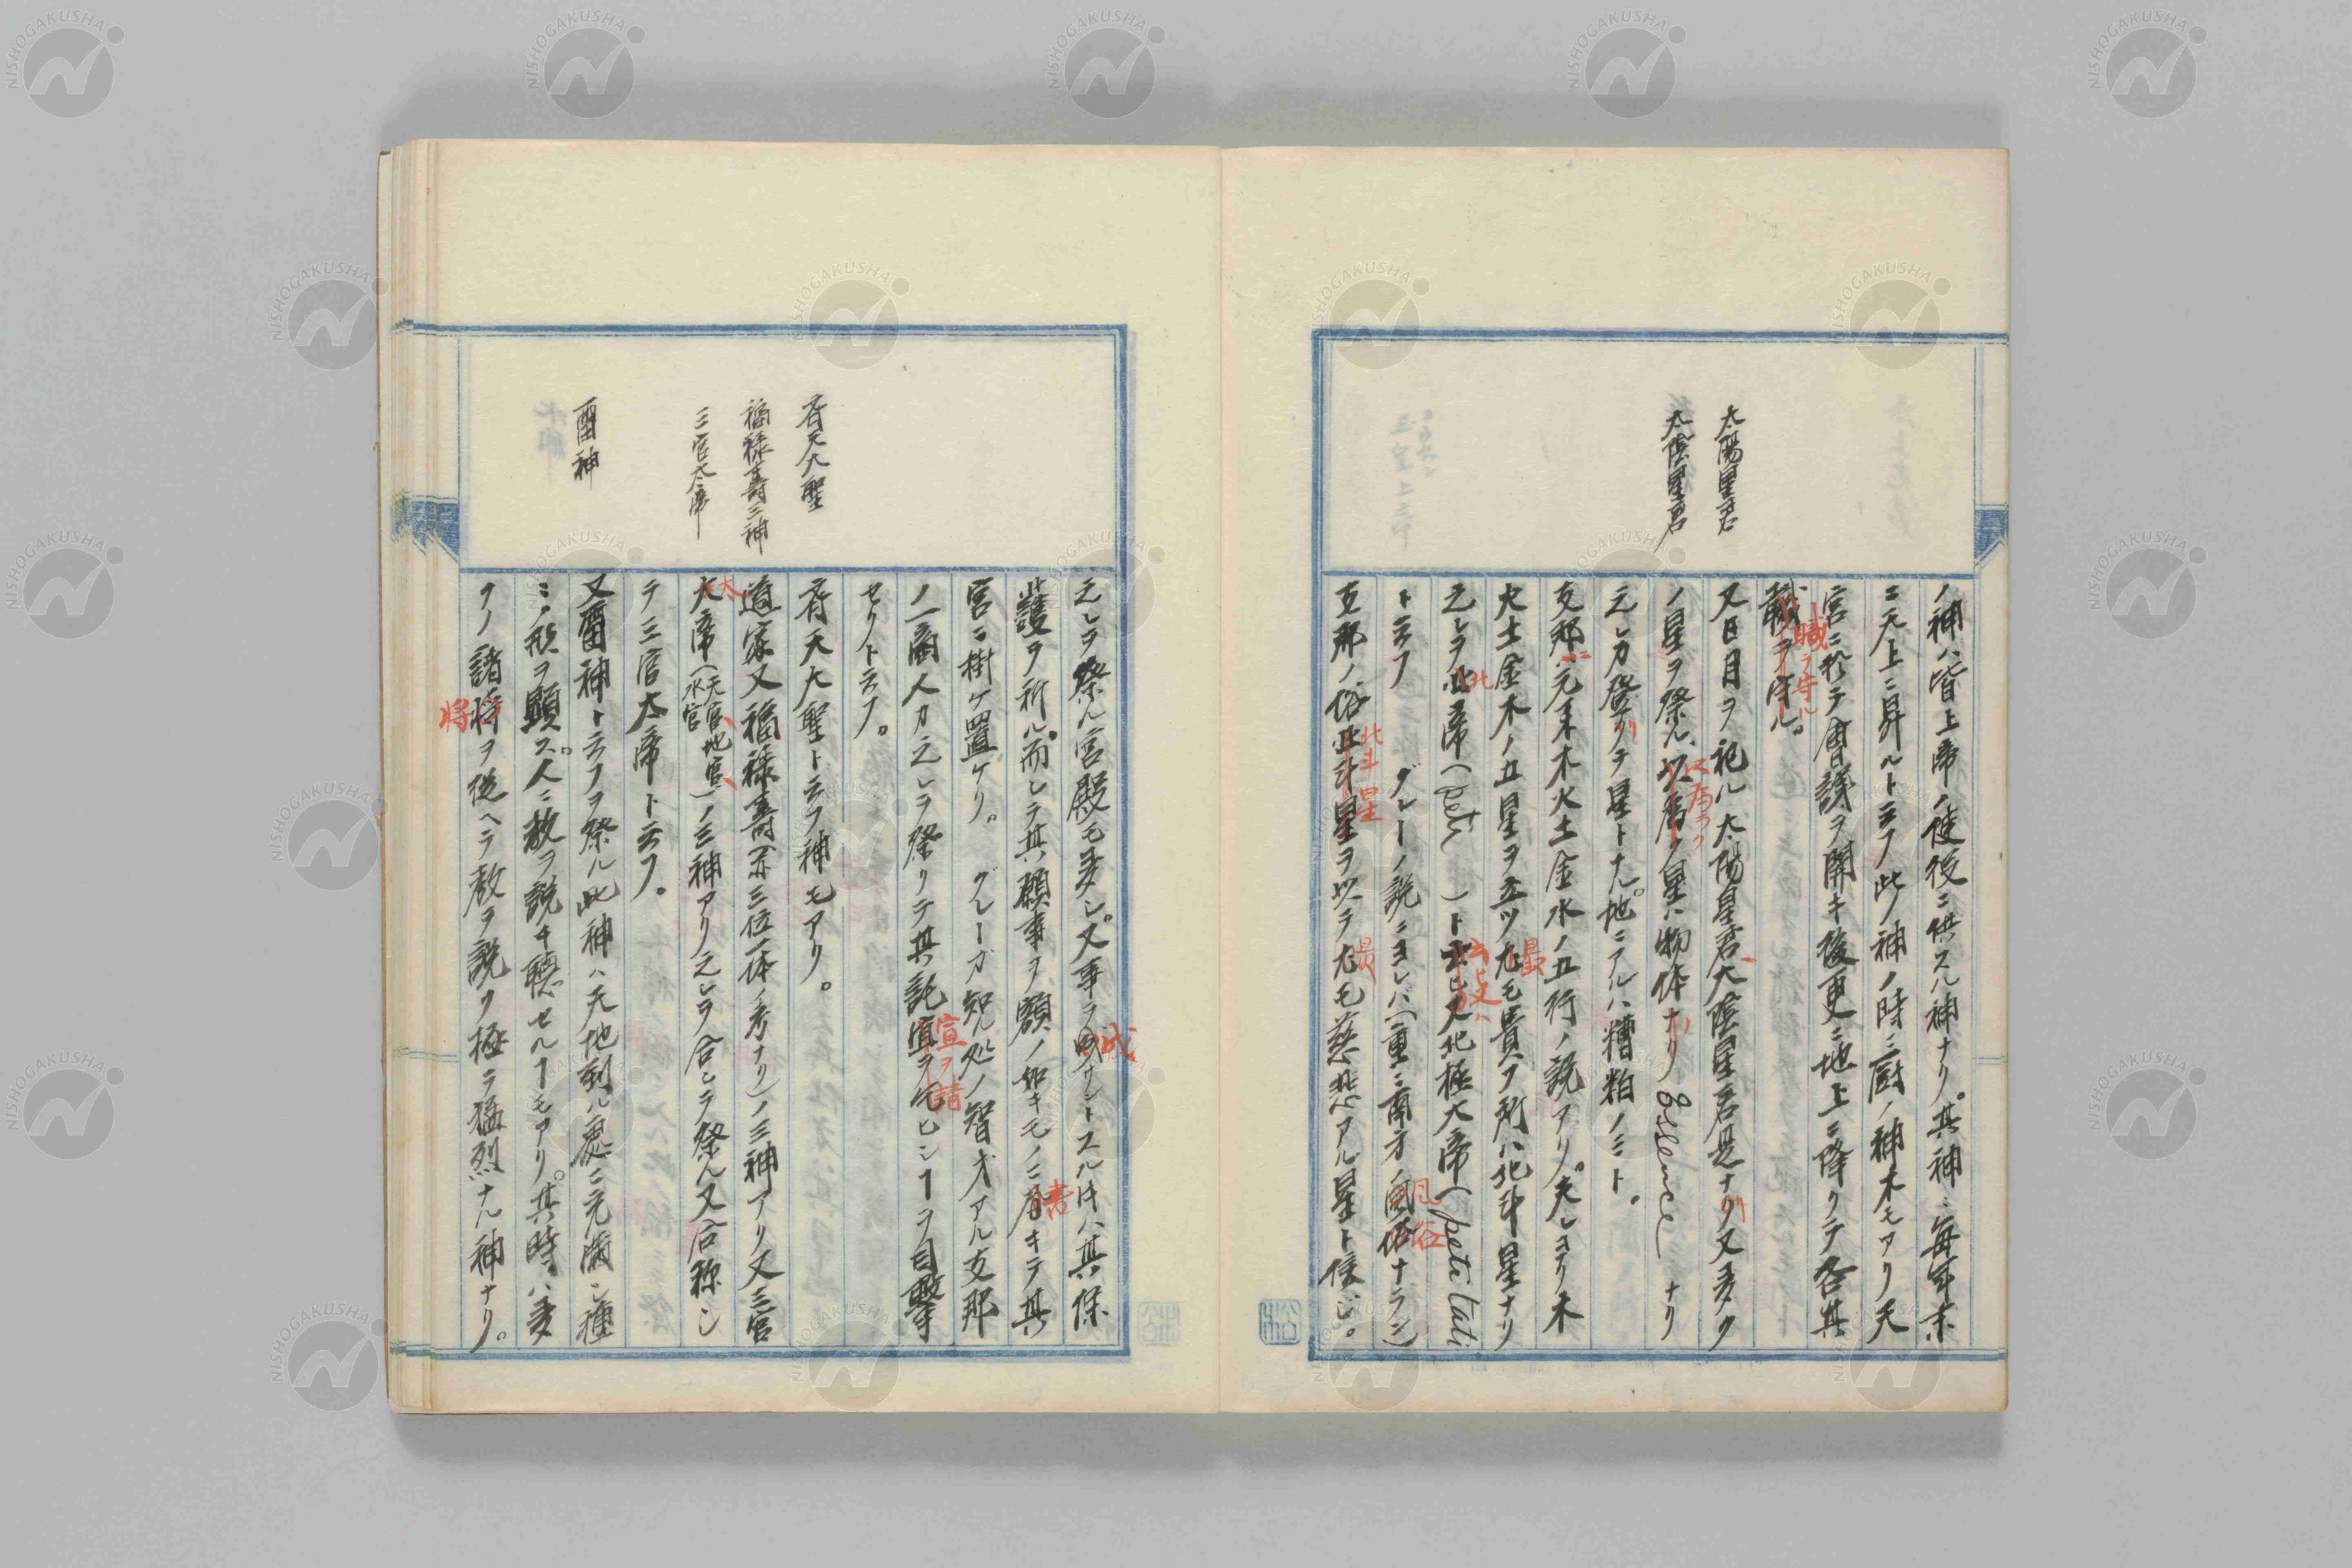 太陽星君
太陰星君
ノ神ハ皆上帝ノ使役ニ供スル神ナリ。其神ニ毎年末
ニ天上ニ昇ルト云フノ此ノ神ノ時ニ厨ノ神木モアリ天
宮ニ於テ會議ヲ開キ後更ニ地上ニ降リテ各其
職ヲ守ル。
職ヲ守ル
又日月ヲ祀ル太陽星君、太陰星君是ナリ又多ク
ノ星ヲ祭ル、以為ラク星ハ物体ナリノ essence ナリ
以為ラク
之レカ登リテ星トナル。地ニアルハ糟粕ノミト。
支那ニ元来木火土金水ノ五行ノ説アリ。夫レヨリ木
火土金木ノ五星ヲ立ツ尤モ貴フ所ハ北斗星ナリ
最
之レヲ北帝(peti )ト云ヒ又北極大帝(peti tati
北
云ヒ又ハ
ト云フ グレーノ説ニヨレバ(重ニ南方ノ風俗ナラン)
風俗
支那ノ俗北斗星ヲ以テ尤モ慈悲アル星ト信ジ。
北斗星
最
斉天大聖
福禄壽三神
三官大帝
雷神
之レヲ祭ル宮殿モ多シ。又事ヲ成サントスル片ハ其保
成
護ヲ祈ル。而シテ其願事ヲ額ノ如キモノニ書キテ其
書
宮ニ掛ケ置ケリ。 グレーガ知ル処ノ智才アル支那
ノ一商人カ之レヲ祭リテ其託宣ヲ乞ヒシヿヲ目撃
宣ヲ請
セリト云フ。
斉天大聖ト云フ神モアリ。
道家又福禄壽(亦三位一体ノ考ナリ)ノ三神アリ又三官
大帝(天官、地官、水官)ノ三神アリ之レヲ合シテ祭ル又合称シ
太
テ三官大帝ト云フ。
又雷神ト云フヲ祭ル此神ハ天地到ル處ニ充満シ種
ミノ形ヲ顕ス。人ニ教ヲ説キ聴セルヿモアリ。其時ハ多
クノ諸将ヲ従ヘテ教ヲ説ク極テ猛烈ナル神ナリ。
将
NISHOGAKUSHA